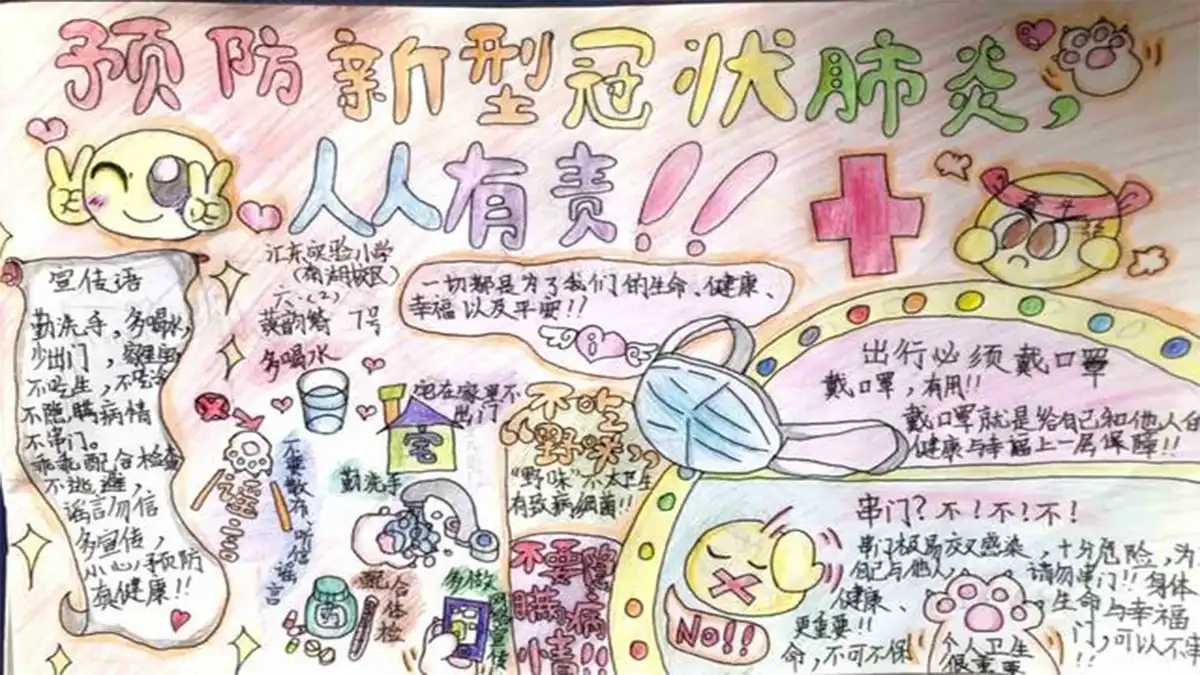 预防新型冠状肺炎，
人人有责！！
宣传语
勤洗手，多喝水，
少出门，
不吃生，
不隐瞒病情
不串门。
乖乖配合检查
不逃避，
谣言勿信
多宣传，
小心预防
有健康！！
汇东实验小学
（南湖校区）
六.(2)
黄韵绮 7号
多喝水
一切都是为了我们的生命、健康、
幸福以及平安！！
宅在家里不
出门
宅
勤洗手
谣言
不要散布、听信谣言
药
配合体检
多做
网络宣传
不吃
“野味”
“野味”不太卫生
有致病细菌！！
不要隐
瞒病
情！！
出行必须戴口罩
戴口罩，有用！！
戴口罩就是给自己和他人的
健康与幸福上一层保障！！
串门？不！不！不！
串门极易双双感染，十分危险，为
自己与他人 请勿串门！！身体
健康、生命与幸福
更重要！！
门，可以不串
命，不可不保 ！！
No！！
个人卫生
很重要